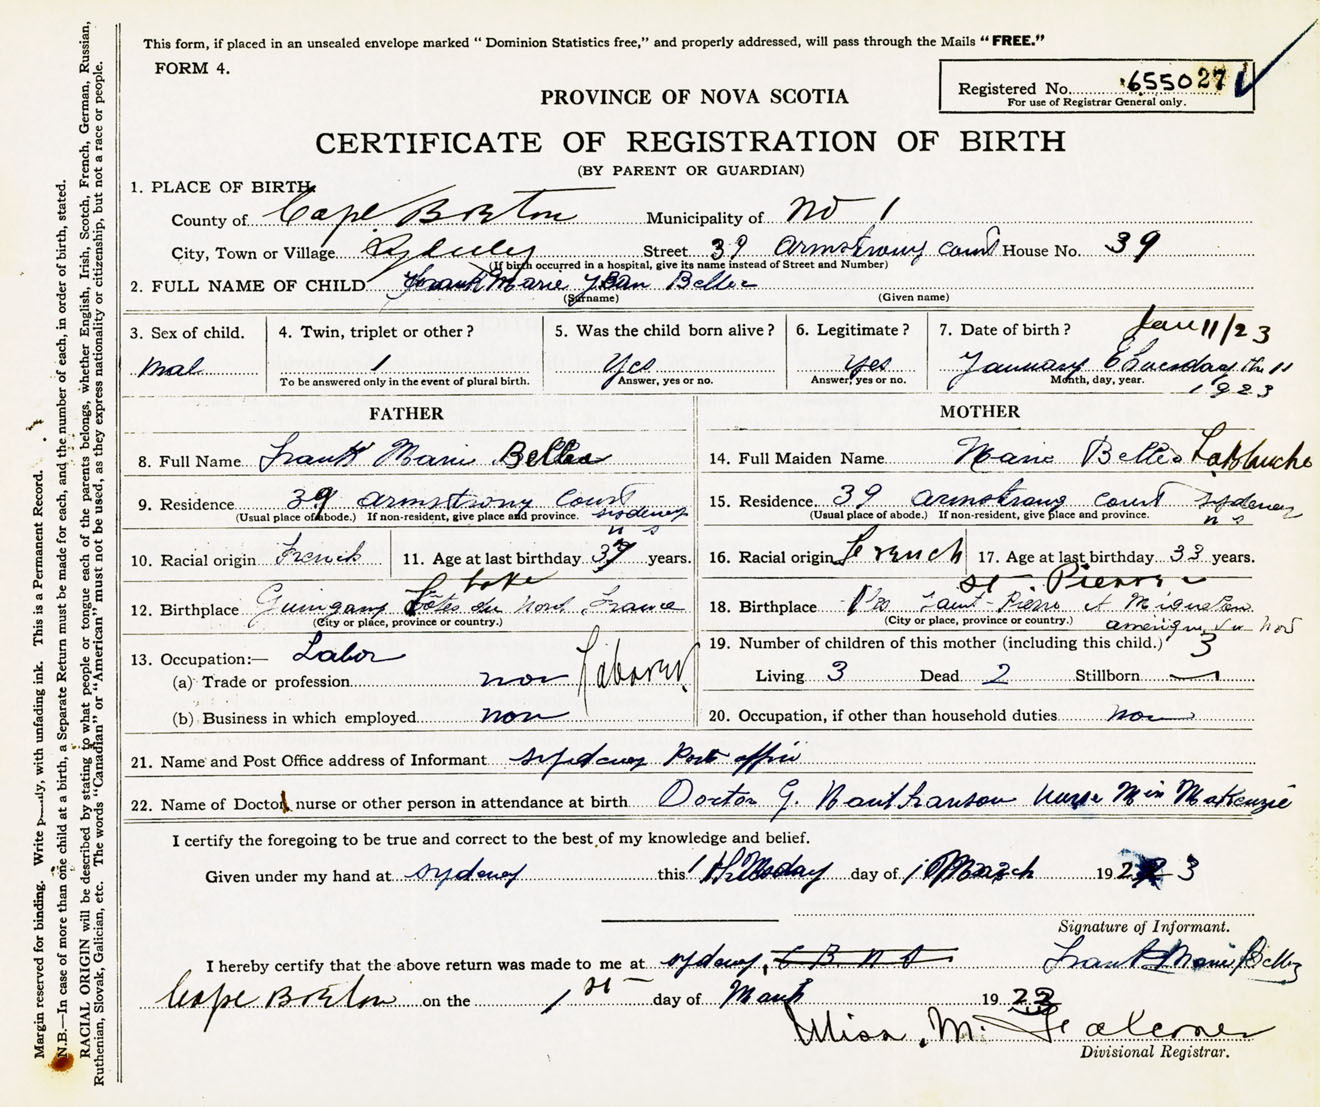 This form, if placed in an unsealed envelope marked “ Dominion Statistics free,” and properly addressed, will pass through the Mails “FREE.”
FORM 4.
Registered No. 655027
For use of Registrar General only.
PROVINCE OF NOVA SCOTIA
CERTIFICATE OF REGISTRATION OF BIRTH
(BY PARENT OR GUARDIAN)
1. PLACE OF BIRTH.
County of Cape Breton Municipality of No 1
City, Town or Village Sydney Street 39 Armstrong Court House No. 39
(If birth occurred in a hospital, give its name instead of Street and Number)
2. FULL NAME OF CHILD Frank Marie Jean
(Surname) (Given name)
3. Sex of child. 4. Twin, triplet or other ? 5. Was the child born alive ? 6. Legitimate ? 7. Date of birth ? Jan 11/23
Mal 1 Yes Yes January Thursday the 11
To be answered only in the event of plural birth. Answer, yes or no. Answer, yes or no. Month, day, year.
1923
FATHER
8. Full Name Frank Marie
9. Residence 39 Armstrong Court
(Usual place of abode.) If non-resident, give place and province. Sydney
N S
10. Racial origin French 11. Age at last birthday 37 years.
12. Birthplace Côtes du Nord France
(City or place, province or country.)
13. Occupation:— Labor
(a) Trade or profession non Laborer
(b) Business in which employed non
MOTHER
14. Full Maiden Name Marie
15. Residence 39 Armstrong Court Sydney
(Usual place of abode.) If non-resident, give place and province. N S
16. Racial origin French 17. Age at last birthday 33 years.
St. Pierre
18. Birthplace Saint-Pierre et Miquelon
(City or place, province or country.) Amerique du Nod
19. Number of children of this mother (including this child.) 3
Living 3 Dead 2 Stillborn —
20. Occupation, if other than household duties non
21. Name and Post Office address of Informant Sydney Post Office
22. Name of Doctor, nurse or other person in attendance at birth Doctor G. Nurse Miss MaKenzie
I certify the foregoing to be true and correct to the best of my knowledge and belief.
Given under my hand at Sydney this 1 day of 1 March 1923
Signature of Informant.
I hereby certify that the above return was made to me at Sydney, C B N S Frank Marie
Cape Breton on the 1st day of March 1923
Miss M. Falconer
Divisional Registrar.
Margin reserved for binding. Write with unfading ink. This is a Permanent Record.
N.B.—In case of more than one child at a birth, a Separate Return must be made for each, and the number of each, in order of birth, stated.
RACIAL ORIGIN will be described by stating to what people or tongue each of the parents belongs, whether English, Irish, Scotch, French, German, Russian,
Ruthenian, Slovak, Galician, etc. The words “Canadian” or “American” must not be used, as they express nationality or citizenship, but not a race or people.